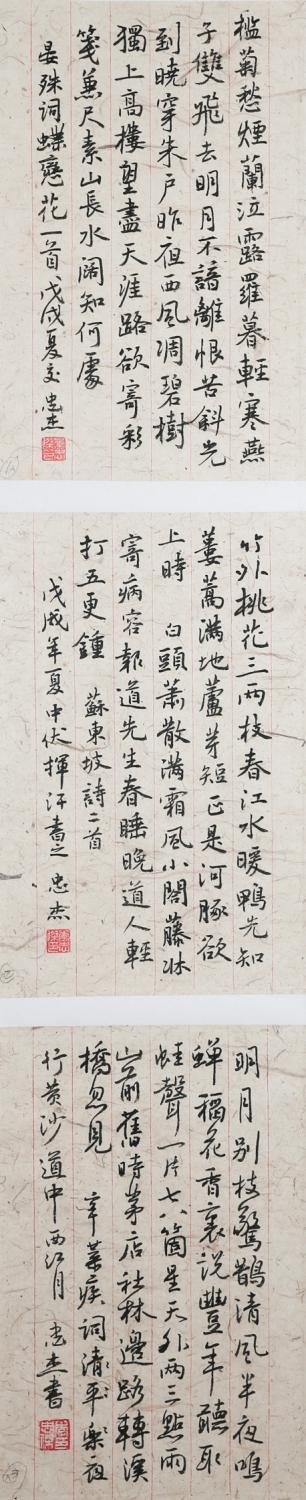 檻菊愁煙蘭泣露羅幕輕寒燕
子雙飛去明月不諳離恨苦斜光
到曉穿朱戶昨夜西風凋碧樹
獨上高樓望盡天涯路欲寄彩
箋兼尺素山長水闊知何處
晏殊詞蝶戀花一首戊戌夏交忠杰
竹外桃花三兩枝春江水暖鴨先知
蔞蒿滿地蘆芽短正是河豚欲
上時 白頭蕭散滿霜風小閣藤牀
寄病容報道先生春睡晚道人輕
打五更鍾 蘇東坡詩二首
戊戌年夏中伏揮汗書之 忠杰
明月別枝驚鵲清風半夜鳴
蟬稻花香裏說豐年聽取
蛙聲一片七八箇星天外兩三點雨
山前舊時茅店社林邊路轉溪
橋忽見 辛棄疾詞清平樂夜
行黄沙道中西江月 忠杰書